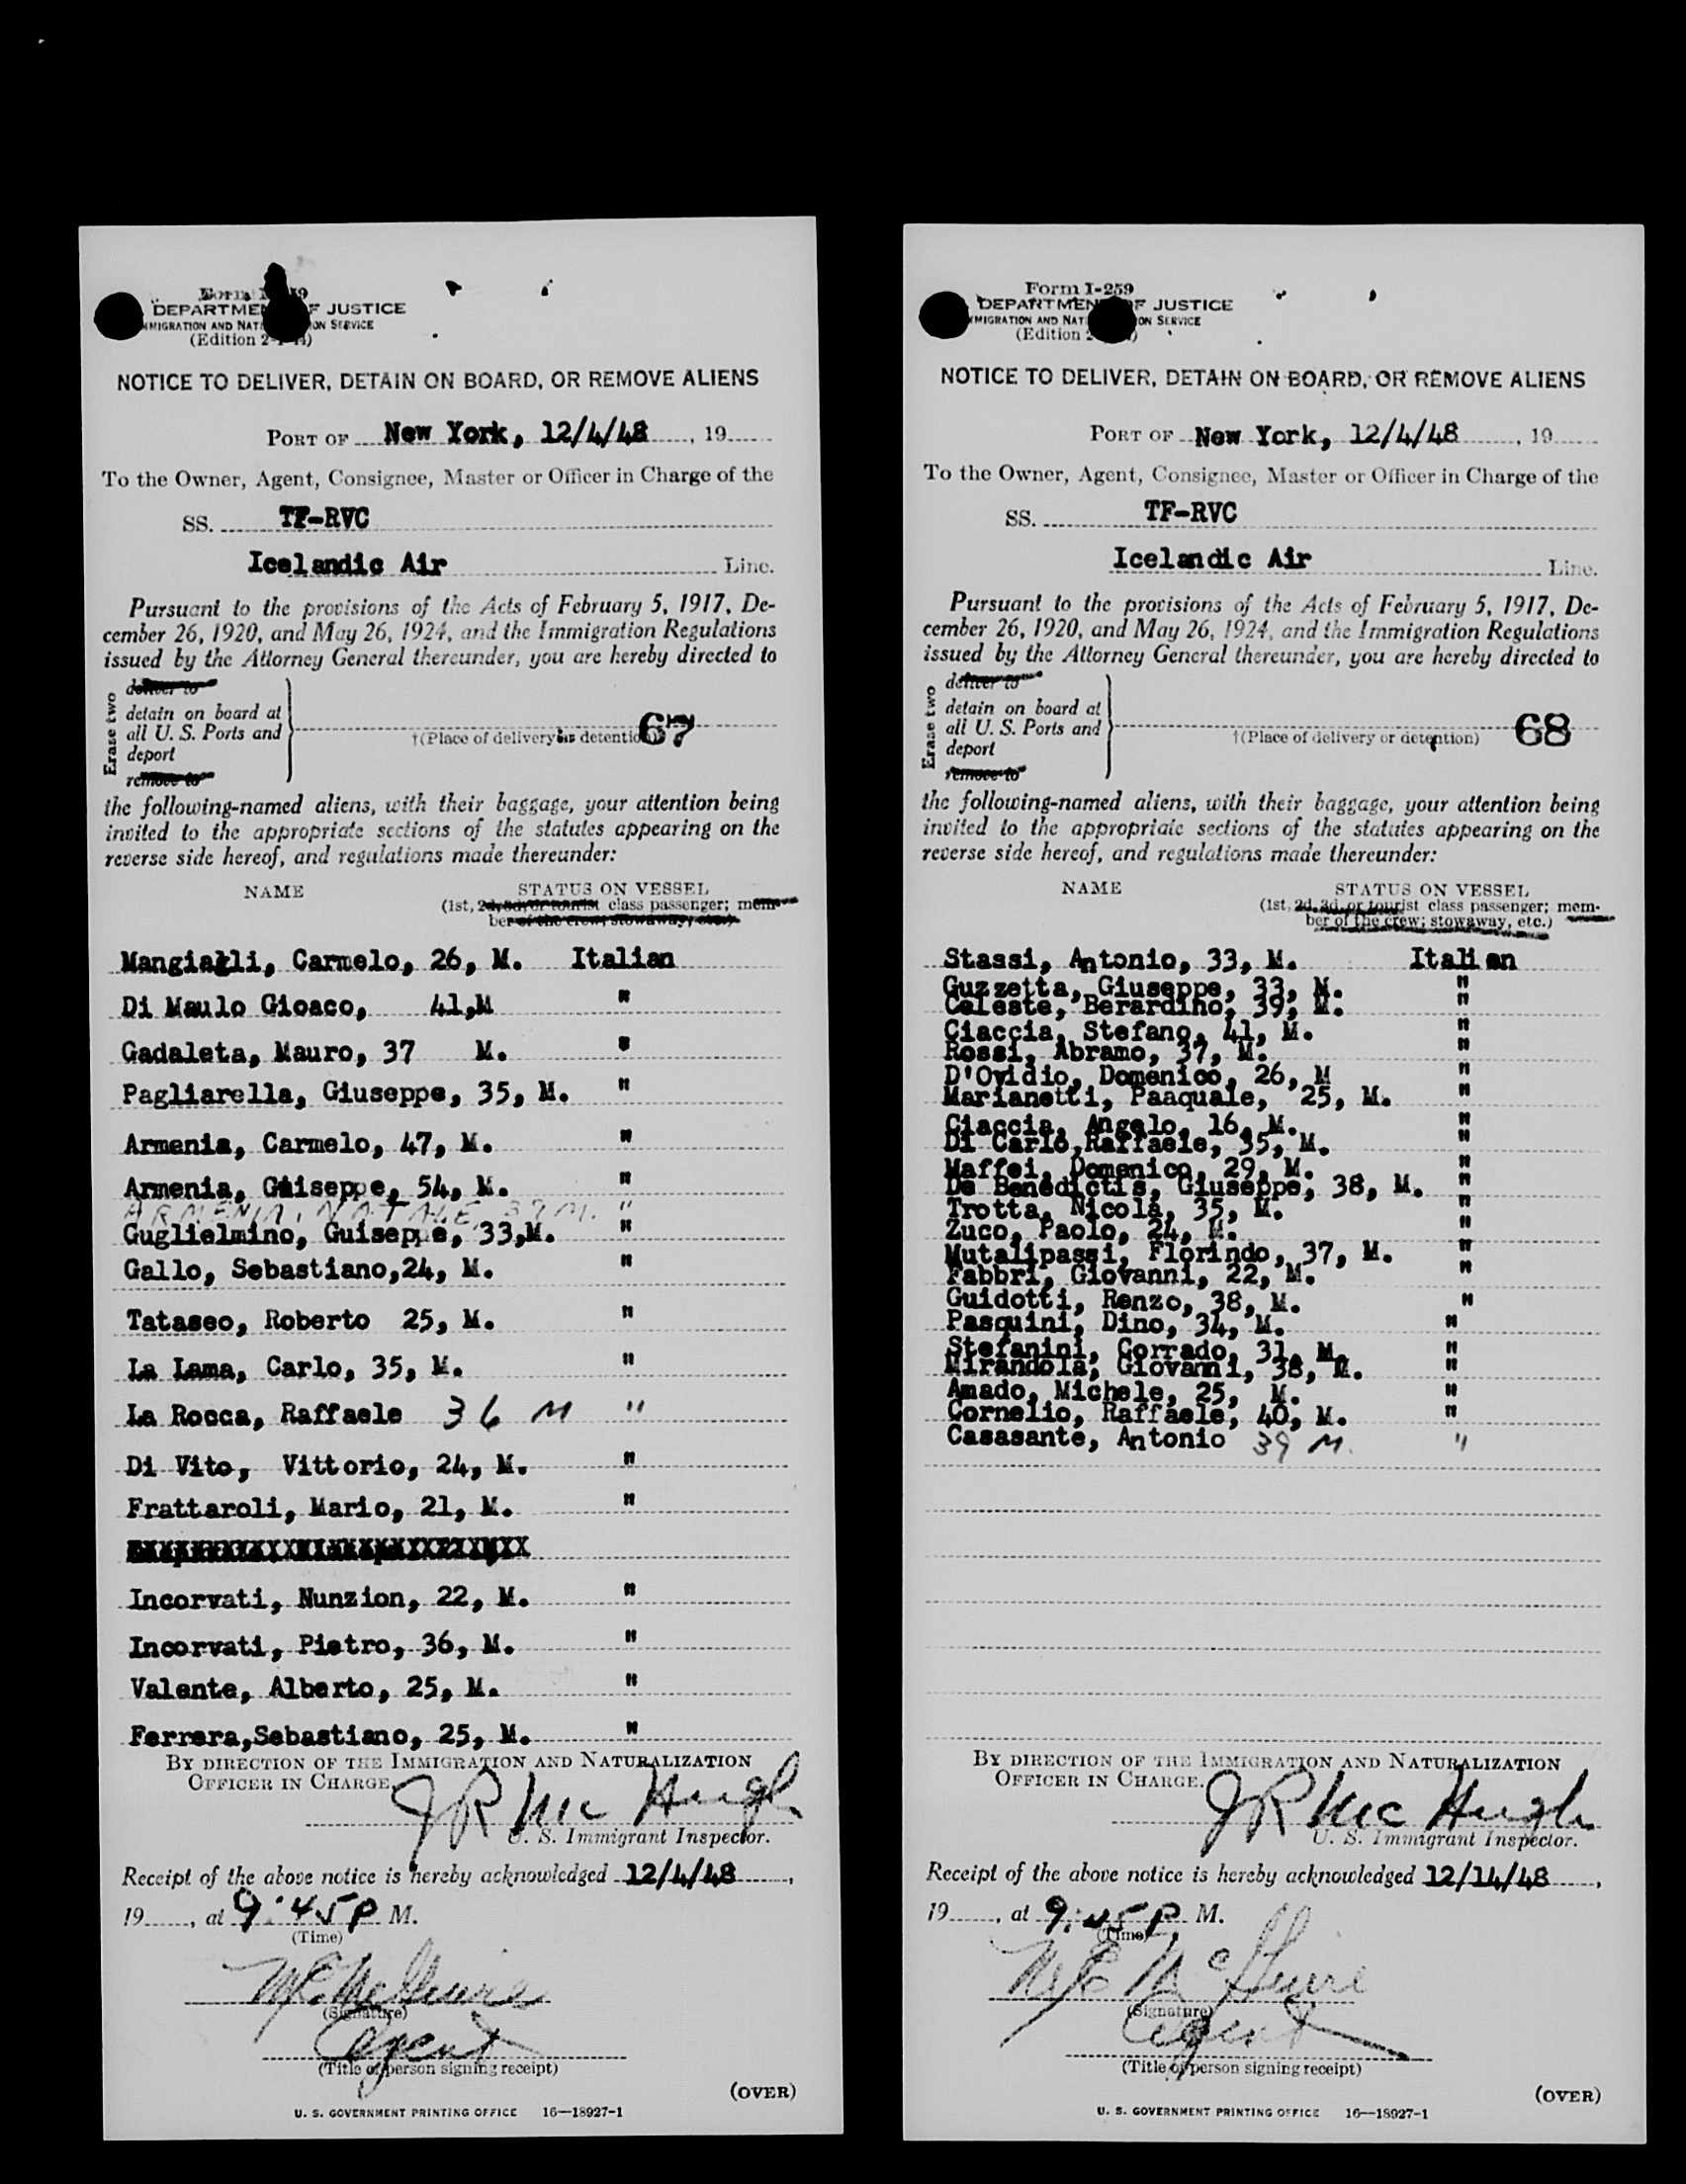 Form I-259
DEPARTMENT OF JUSTICE
IMMIGRATION AND NATURALIZATION SERVICE
(Edition
NOTICE TO DELIVER, DETAIN ON BOARD, OR REMOVE ALIENS
PORT OF New York, 12/4/48, 19
To the Owner, Agent, Consignee, Master or Officer in Charge of the
SS. TF-RVC
Icelandic Air Line.
Pursuant to the provisions of the Acts of February 5, 1917, De-
cember 26, 1920, and May 26, 1924, and the Immigration Regulations
issued by the Attorney General thereunder, you are hereby directed to
Erase two
deliver to
detain on board at
all U. S. Ports and
deport
remove to
†(Place of delivery or detention) 67
the following-named aliens, with their baggage, your attention being
invited to the appropriate sections of the statutes appearing on the
reverse side hereof, and regulations made thereunder:
NAME STATUS ON VESSEL
(1st, 2d, 3d, or tourist class passenger; mem-
ber of the crew; stowaway, etc.)
Mangiagli, Carmelo, 26, M. Italian
Di Maulo Gioaco, 41,M "
Gadaleta, Mauro, 37 M. "
Pagliarella, Giuseppe, 35, M. "
Armenia, Carmelo, 47, M. "
Armenia, Guiseppe, 54, M. "
ARMENIA, NATALE, 39 M. "
Guglielmino, Guiseppe, 33,M. "
Gallo, Sebastiano,24, M. "
Tataseo, Roberto 25, M. "
La Lama, Carlo, 35, M. "
La Rocca, Raffaele 36 M "
Di Vito, Vittorio, 24, M. "
Frattaroli, Mario, 21, M. "
Incorvati, Nunzion, 22, M. "
Incorvati, Pietro, 36, M. "
Valente, Alberto, 25, M. "
Ferrera,Sebastiano, 25, M. "
BY DIRECTION OF THE IMMIGRATION AND NATURALIZATION
OFFICER IN CHARGE.
J R McHugh
U. S. Immigrant Inspector.
Receipt of the above notice is hereby acknowledged 12/4/48,
19, at 9:45 P M.
(Time)
M E McGuire
(Signature)
Agent
(Title of person signing receipt)
(OVER)
U. S. GOVERNMENT PRINTING OFFICE 16—18927-1
Form I-259
DEPARTMENT OF JUSTICE
IMMIGRATION AND NATURALIZATION SERVICE
(Edition
NOTICE TO DELIVER, DETAIN ON BOARD, OR REMOVE ALIENS
PORT OF New York, 12/4/48, 19
To the Owner, Agent, Consignee, Master or Officer in Charge of the
SS. TF-RVC
Icelandic Air Line.
Pursuant to the provisions of the Acts of February 5, 1917, De-
cember 26, 1920, and May 26, 1924, and the Immigration Regulations
issued by the Attorney General thereunder, you are hereby directed to
Erase two
deliver to
detain on board at
all U. S. Ports and
deport
remove to
†(Place of delivery or detention) 68
the following-named aliens, with their baggage, your attention being
invited to the appropriate sections of the statutes appearing on the
reverse side hereof, and regulations made thereunder:
NAME STATUS ON VESSEL
(1st, 2d, 3d, or tourist class passenger; mem-
ber of the crew; stowaway, etc.)
Stassi, Antonio, 33, M. Italian
Guzzetta, Giuseppe, 33, M. "
Celeste, Berardino, 39, M. "
Ciaccia, Stefano, 41, M. "
Rossi, Abramo, 37, M. "
D'Ovidio, Domenico, 26, M "
Marianetti, Paaquale, 25, M. "
Ciaccia, Angelo, 16, M. "
Di Carlo,Raffaele, 35, M. "
Maffei, Domenico, 29, M. "
De Benedictis, Giuseppe, 38, M. "
Trotta, Nicola, 35, M. "
Zuco, Paolo, 24, M. "
Mutalipassi, Florindo, 37, M. "
Fabbri, Giovanni, 22, M. "
Guidotti, Renzo, 38, M. "
Pasquini, Dino, 34, M. "
Stefanini, Corrado, 31, M. "
Mirandola, Giovanni, 38, M. "
Amado, Michele, 25, M. "
Cornelio, Raffaele, 40, M. "
Casasante, Antonio 39 M. "
BY DIRECTION OF THE IMMIGRATION AND NATURALIZATION
OFFICER IN CHARGE.
J R McHugh
U. S. Immigrant Inspector.
Receipt of the above notice is hereby acknowledged 12/14/48,
19, at 9:45 P. M.
(Time)
M E McGuire
(Signature)
Agent
(Title of person signing receipt)
(OVER)
U. S. GOVERNMENT PRINTING OFFICE 16—18927-1